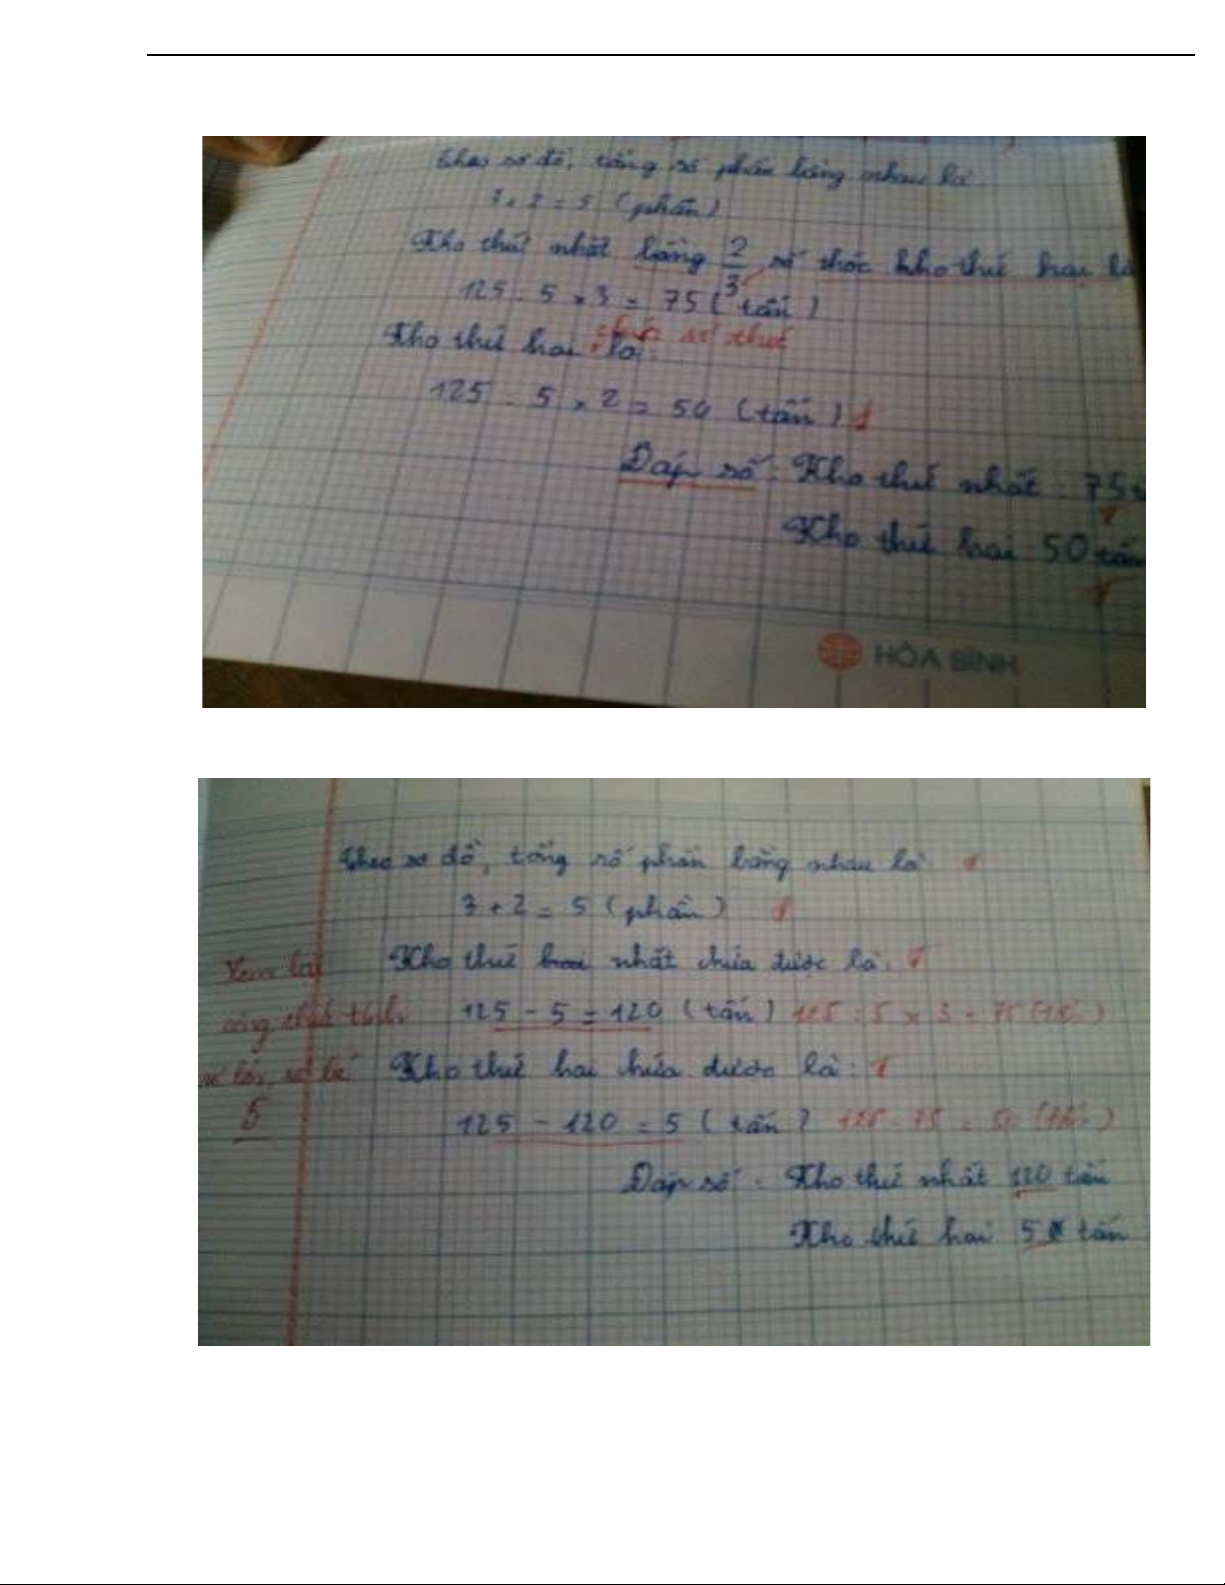 Theo sơ đồ, tổng số phần bằng nhau là
3 + 2 = 5 (phần)
Kho thứ nhất bằng 2/3 số thóc kho thứ hai là
125 : 5 x 3 = 75 (tấn)
chứa số thóc
Kho thứ hai là:
125 : 5 x 2 = 50 (tấn)
Đáp số: Kho thứ nhất : 75 t
Kho thứ hai 50 tấn
HÒA BÌNH
Theo sơ đồ, tổng số phần bằng nhau là
3 + 2 = 5 (phần)
Kho thứ nhất chứa được là:
Xem lại
125 - 5 = 120 (tấn) 125 : 5 x 3 = 75 (tấn)
công thức tính
Kho thứ hai chứa được là:
số lớn, số bé
125 - 120 = 5 (tấn) 125 - 75 = 50 (tấn)
5
Đáp số : Kho thứ nhất 120 tấn
Kho thứ hai 5 tấn